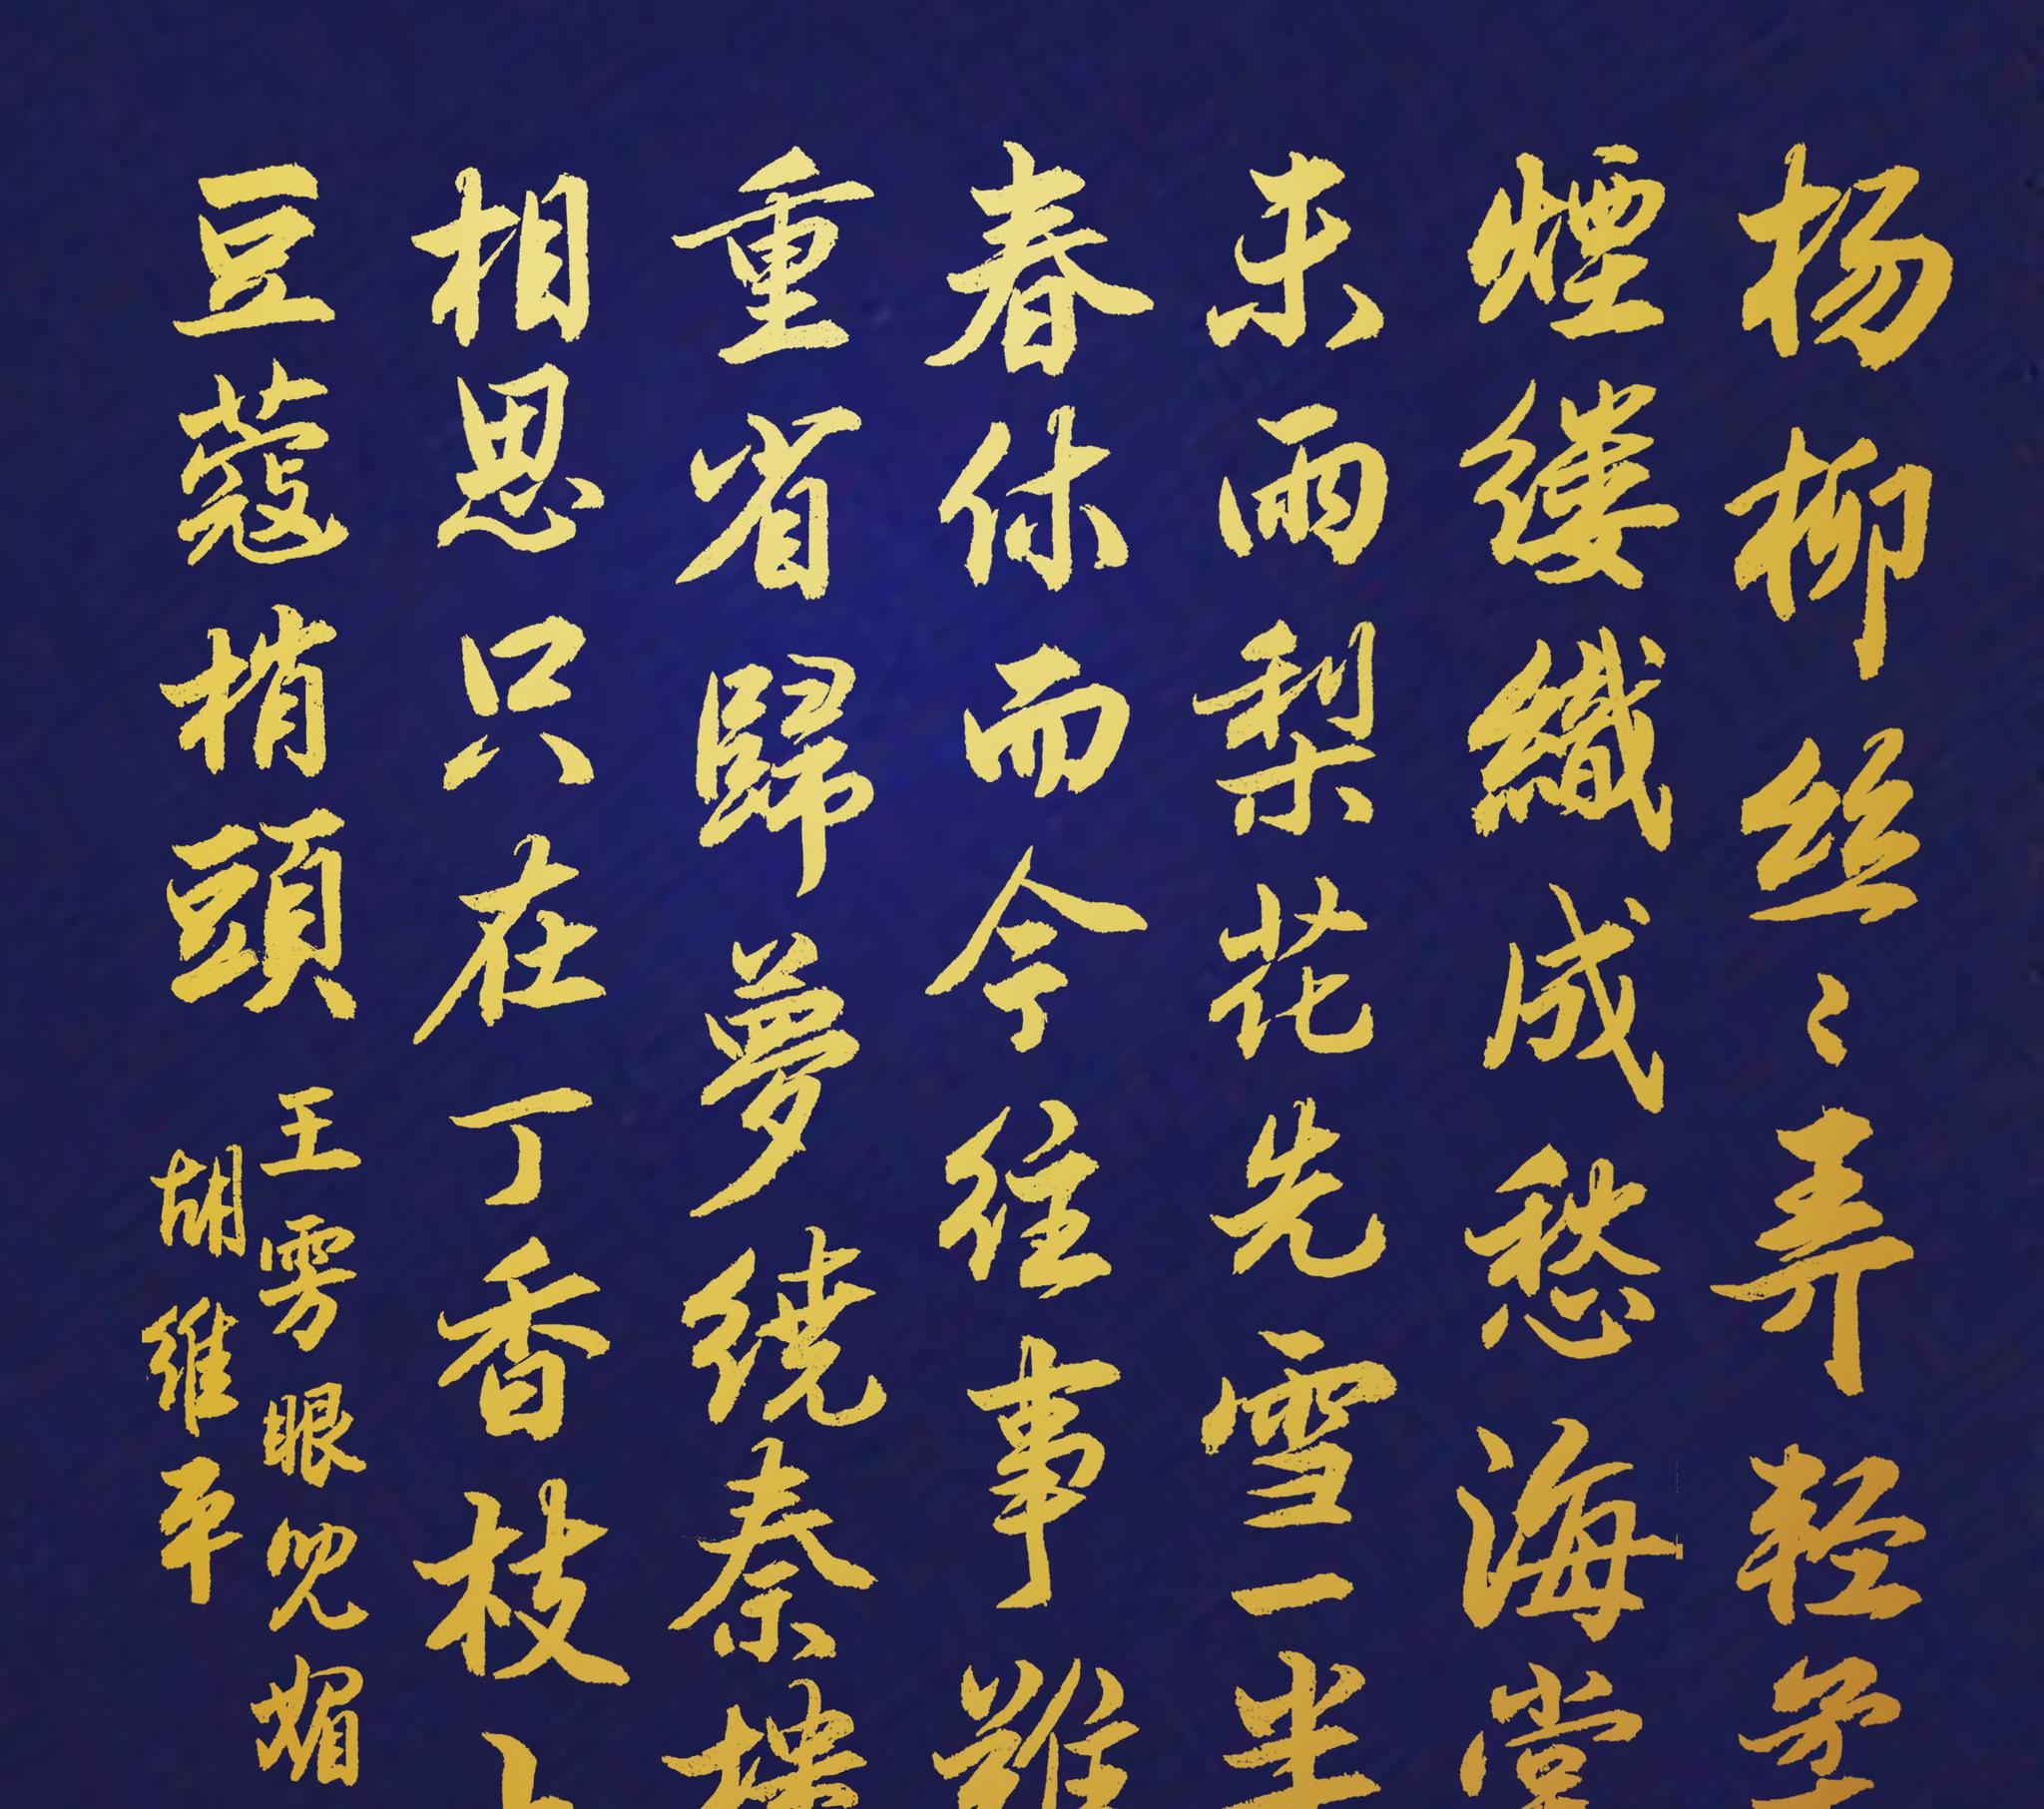 杨柳丝〻弄轻柔
煙缕織成愁海棠
未雨梨花先雪一半
春休而今往事難
重省歸夢绕秦楼
相思只在丁香枝上
豆蔻梢頭
王雱眼兒媚
胡維平